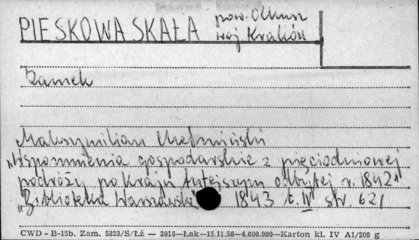 PIESKOWA SKAŁA pow. Olkusz
woj Kraków
Zamek
Maksymilian
"Wspomnienia gospodarskie z pięciodniowej
podróży po kraju tutejszym odbytej r. 1842"
"Biblioteka Warszawska" 1843 t. IV str. 621
CWD - B-15b. Zam. 5823/S/Łź — 3016—Łak—15.11.50—4.000.000—Karton kl. IV A1/200 g